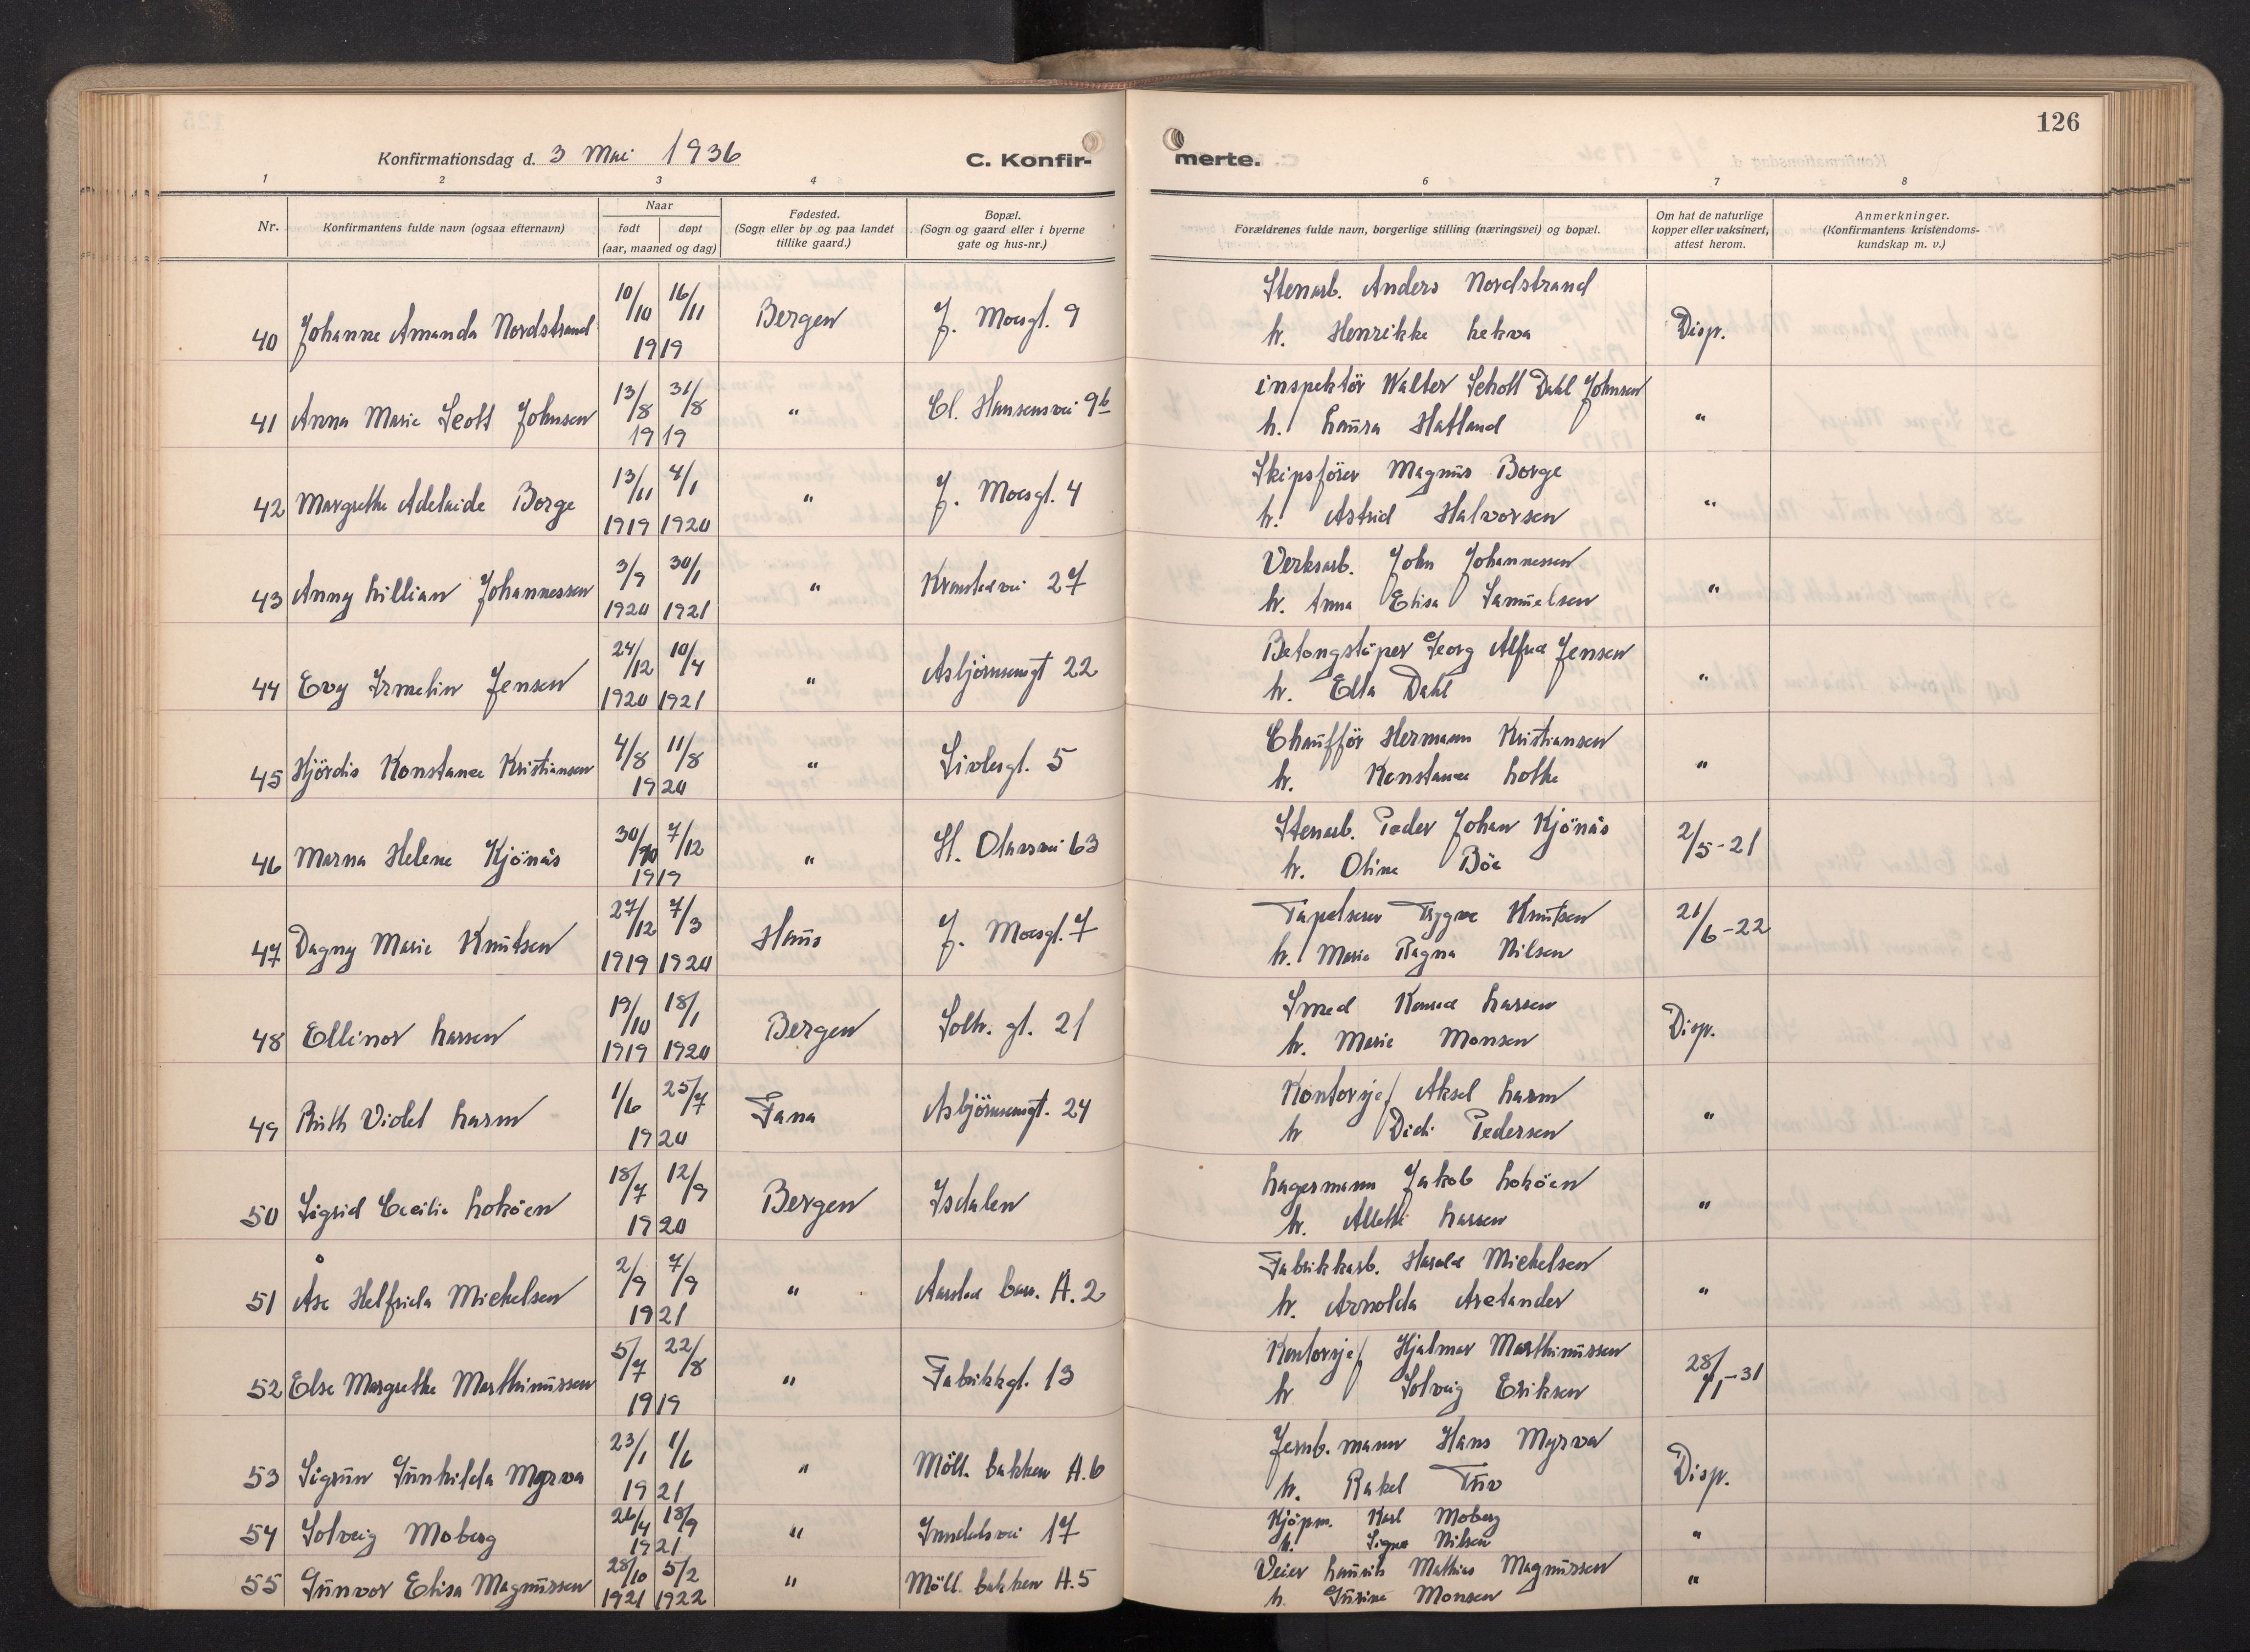 126
Konfirmationsdag d. 3 Mai 1936
C. Konfir-
merte.
1 2 3 4 6 7 8
Nr.
Konfirmantens fulde navn (ogsaa efternavn)
Naar
født døpt
(aar, maaned og dag)
Fødested.
(Sogn eller by og paa landet
tillike gaard.)
Bopæl.
(Sogn og gaard eller i byerne
gate og hus-nr.)
Forældrenes fulde navn, borgerlige stilling (næringsvei) og bopæl.
Om hat de naturlige
kopper eller vaksinert,
attest herom.
Anmerkninger.
(Konfirmantens kristendoms-
kundskap m. v.)
10/10 16/11 Stenarb. Anders Nordstrand
40 Johanne Amanda Nordstrand Bergen J. Moesgt. 9 h. Henrikke Lekva Disp.
1919
13/8 31/8 inspektör Walter Schott Dahl Johnsen
41 Anna Marie Scott Johnsen " Cl. Hansensvei 9b h. Laura Hatland "
1919
13/11 4/1 Skipsförer Magnus Borge
42 Margrethe Adelaide Borge " J. Moesgt. 4 h. Astrid Halvorsen "
1919 1920
3/9 30/1 Verksarb. John Johannessen
43 Anny Lillian Johannessen " 27 h. Anna Elisa Samuelsen "
1920 1921
24/12 10/4 Betongstöper Georg Alfred Jensen
44 Evy Irmelin Jensen " Asbjörnsensgt 22 h. Ella Dahl "
1920 1921
4/8 11/8 Chaufför Hermann Kristiansen
45 Hjördis Konstance Kristiansen " Sivlesgt. 5 h. Konstance Lothe "
1920
30/10 7/12 Stenarb. Peder Johan Kjönås
46 Marna Helene Kjönås " St. Olavsvei 63 h. Oline Böe 2/5-21
1919
27/12 7/3 Tapetserer Trygve Knutsen
47 Dagny Marie Knutsen Haus J. Moesgt. 7 h. Marie Ragna Nilsen 21/6-22
1919 1920
19/10 18/1 Smed Konrad Larsen
48 Ellinor Larsen Bergen Solh. gt. 21 h. Marie Monsen Disp.
1919 1920
1/6 25/7 Kontorsjef Aksel Larm
49 Ruth Violet Larm Fana Asbjörnsensgt. 24 h Didi Pedersen "
1920
18/7 12/9 Lagermann Jakob Loköen
50 Sigrid Cecilie Loköen Bergen Isdalen h. Alletti Larsen "
1920
2/9 7/9 Fabrikkarb. Harald Mickelsen
51 Åse Helfrida Mickelsen " Aarstad barr. A. 2 h. Arnolda Aretander "
1921
5/7 22/8 Kontorsjef Hjalmar Marthinussen
52 Else Margrethe Marthinussen " Fabrikkgt. 13 h Solveig Eriksen 28/1-31
1919
23/1 1/6 Jernb. mann Hans Myrva
53 Sigrun Gunhilda Myrva " Möll. bakken A. 6 h. Rakel Tuv Disp.
1921
26/4 18/9 Kjöpm. Karl Moberg
54 Solveig Moberg " Inndalsvei 17 h. Signe Nilsen "
1921
28/10 5/2 Veier Laurits Mathias Magnussen
55 Gunvor Elisa Magnussen " Möll. bakken A. 5 h. Gurine Monsen "
1921 1922